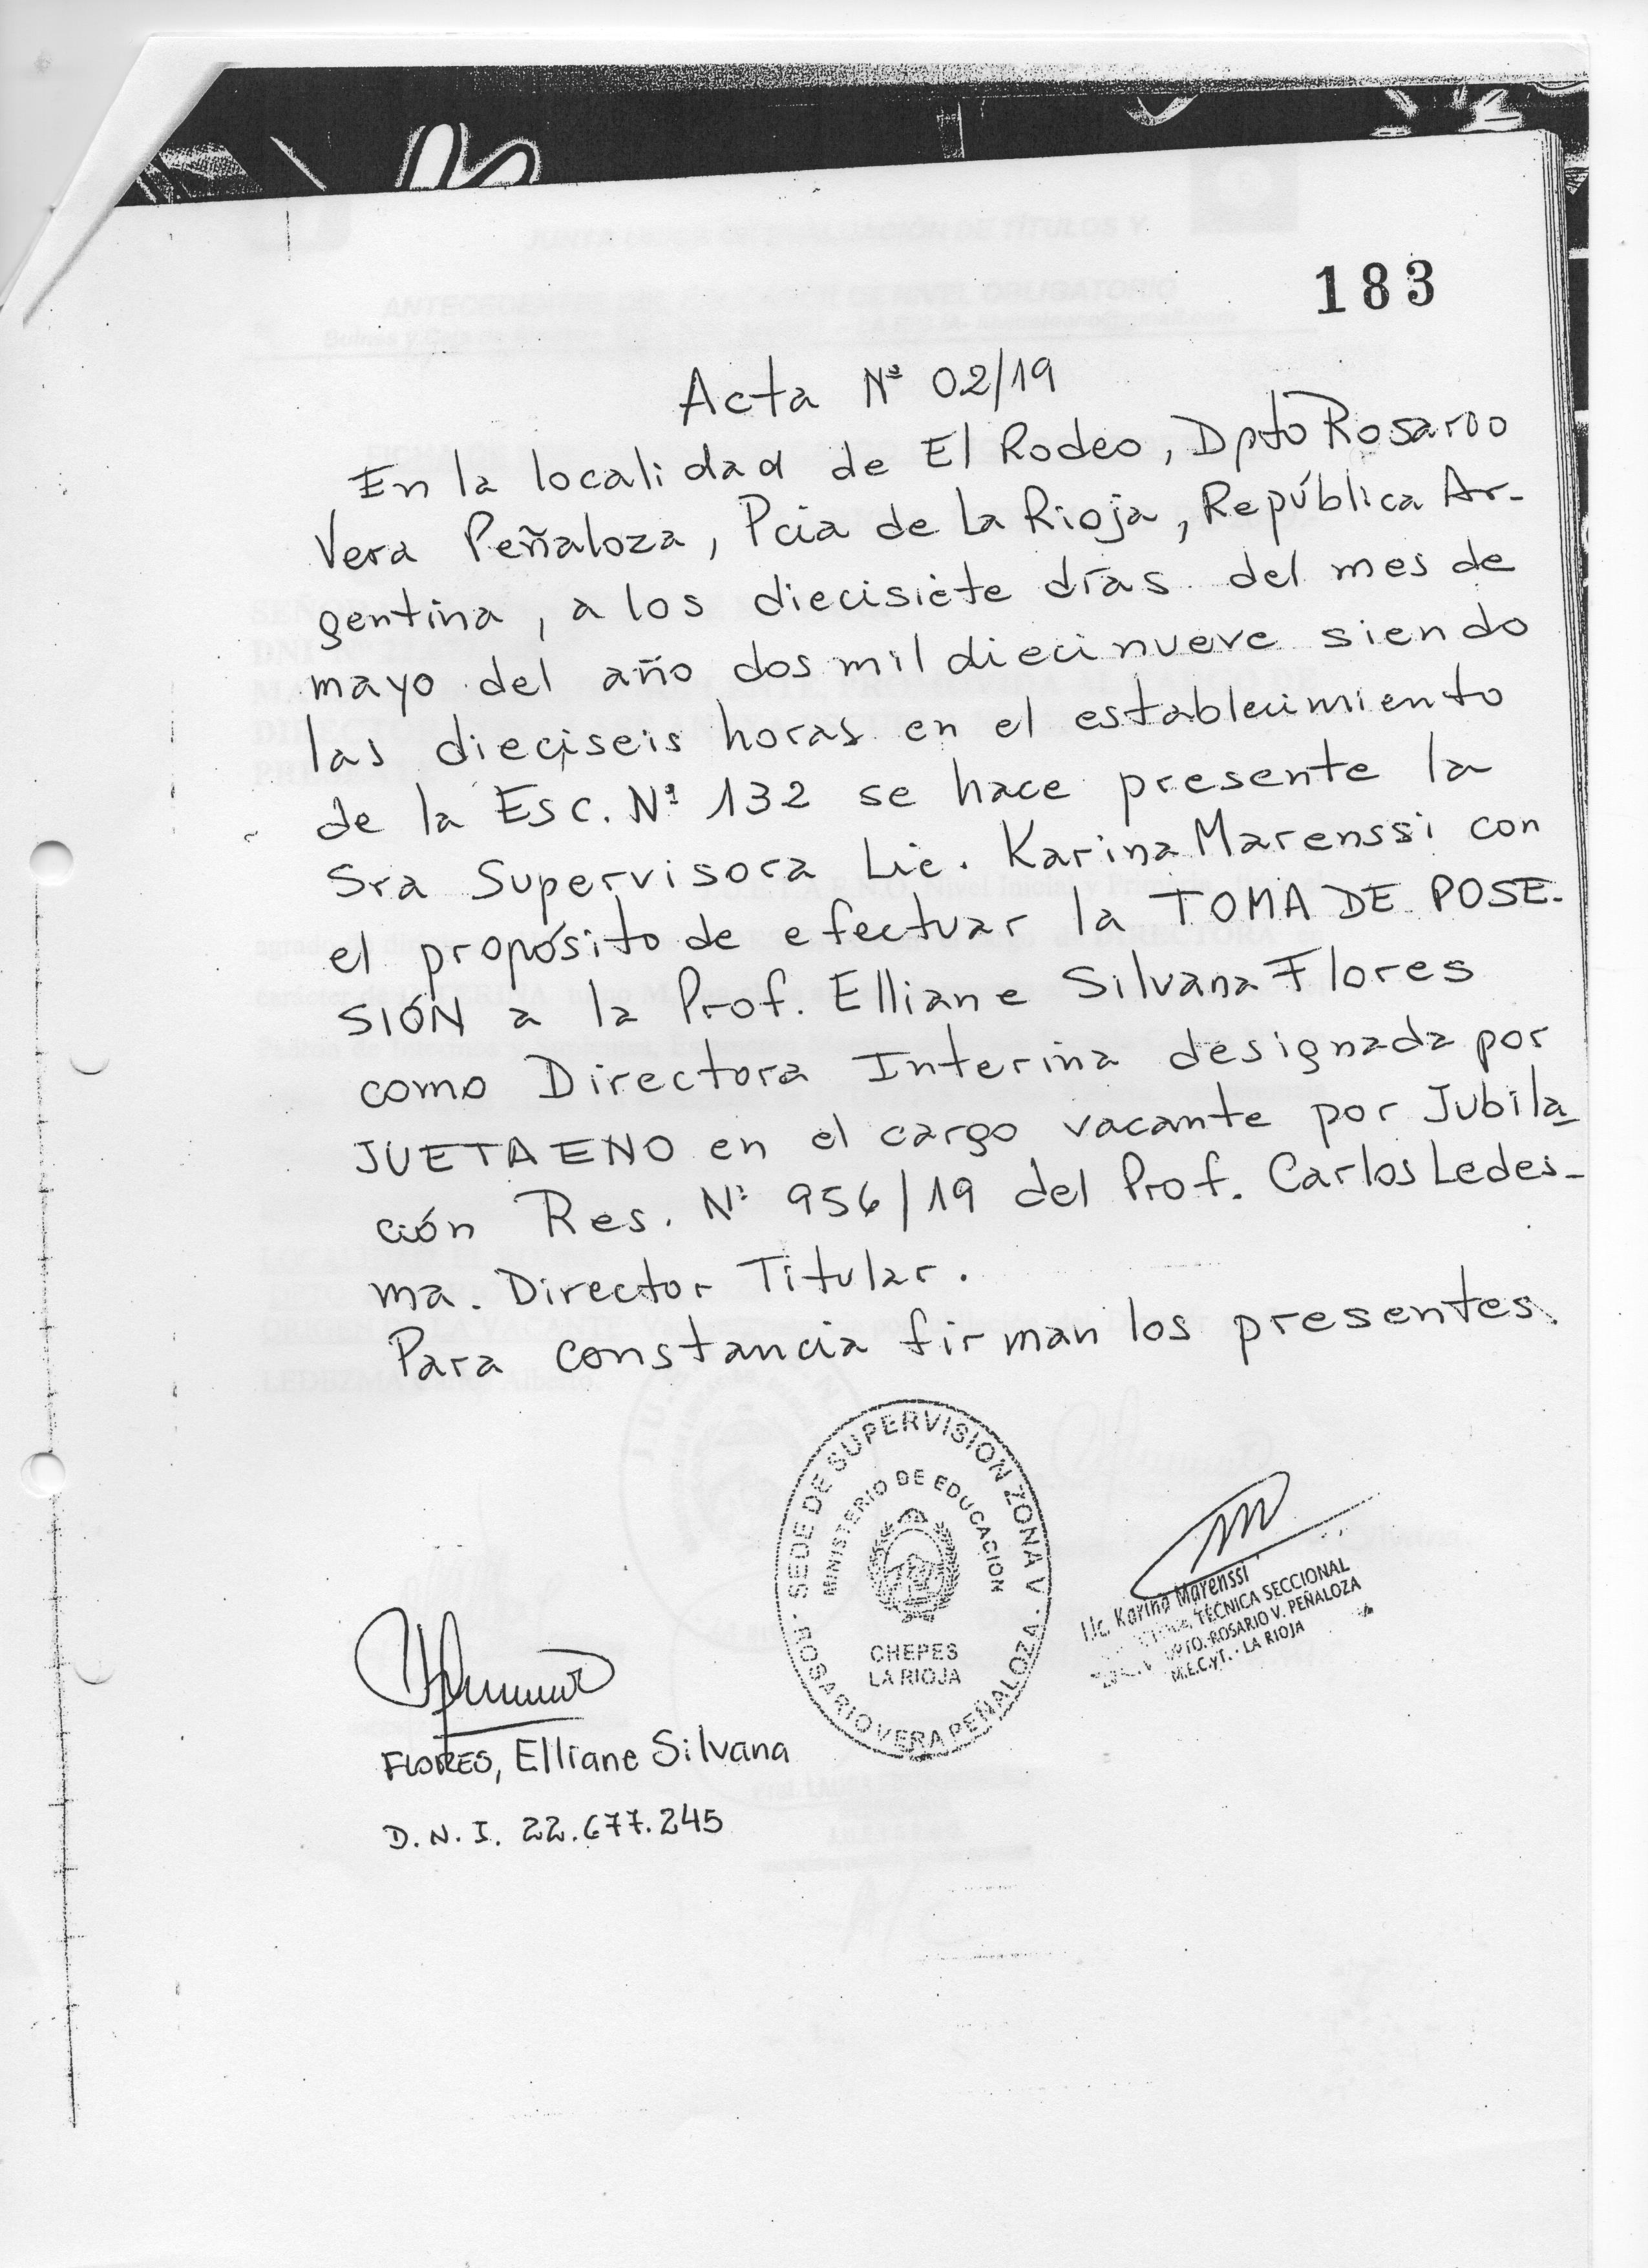 183
Acta Nº 02/19
En la localidad de El Rodeo, Dpto Rosario
Vera Peñaloza, Pcia de La Rioja, República Ar-
gentina, a los diecisiete días del mes de
mayo del año dos mil diecinueve siendo
las dieciseis horas en el establecimiento
de la Esc. Nº 132 se hace presente la
Sra Supervisora Lic. Karina Marenssi con
el propósito de efectuar la TOMA DE POSE-
SIÓN a la Prof. Elliane Silvana Flores
como Directora Interina designada por
JUETAENO en el cargo vacante por Jubila
ción Res. Nº 956/19 del Prof. Carlos Ledes-
ma. Director Titular.
Para constancia firman los presentes.
SEDE DE SUPERVISION ZONA V
MINISTERIO DE EDUCACION
CHEPES
LA RIOJA
ROSARIO VERA PEÑALOZA
Lic. Karina Marenssi
TÉCNICA SECCIONAL
DPTO. ROSARIO V. PEÑALOZA
M.E.C.yT. - LA RIOJA
FLORES, Elliane Silvana
D.N.I. 22.677.245